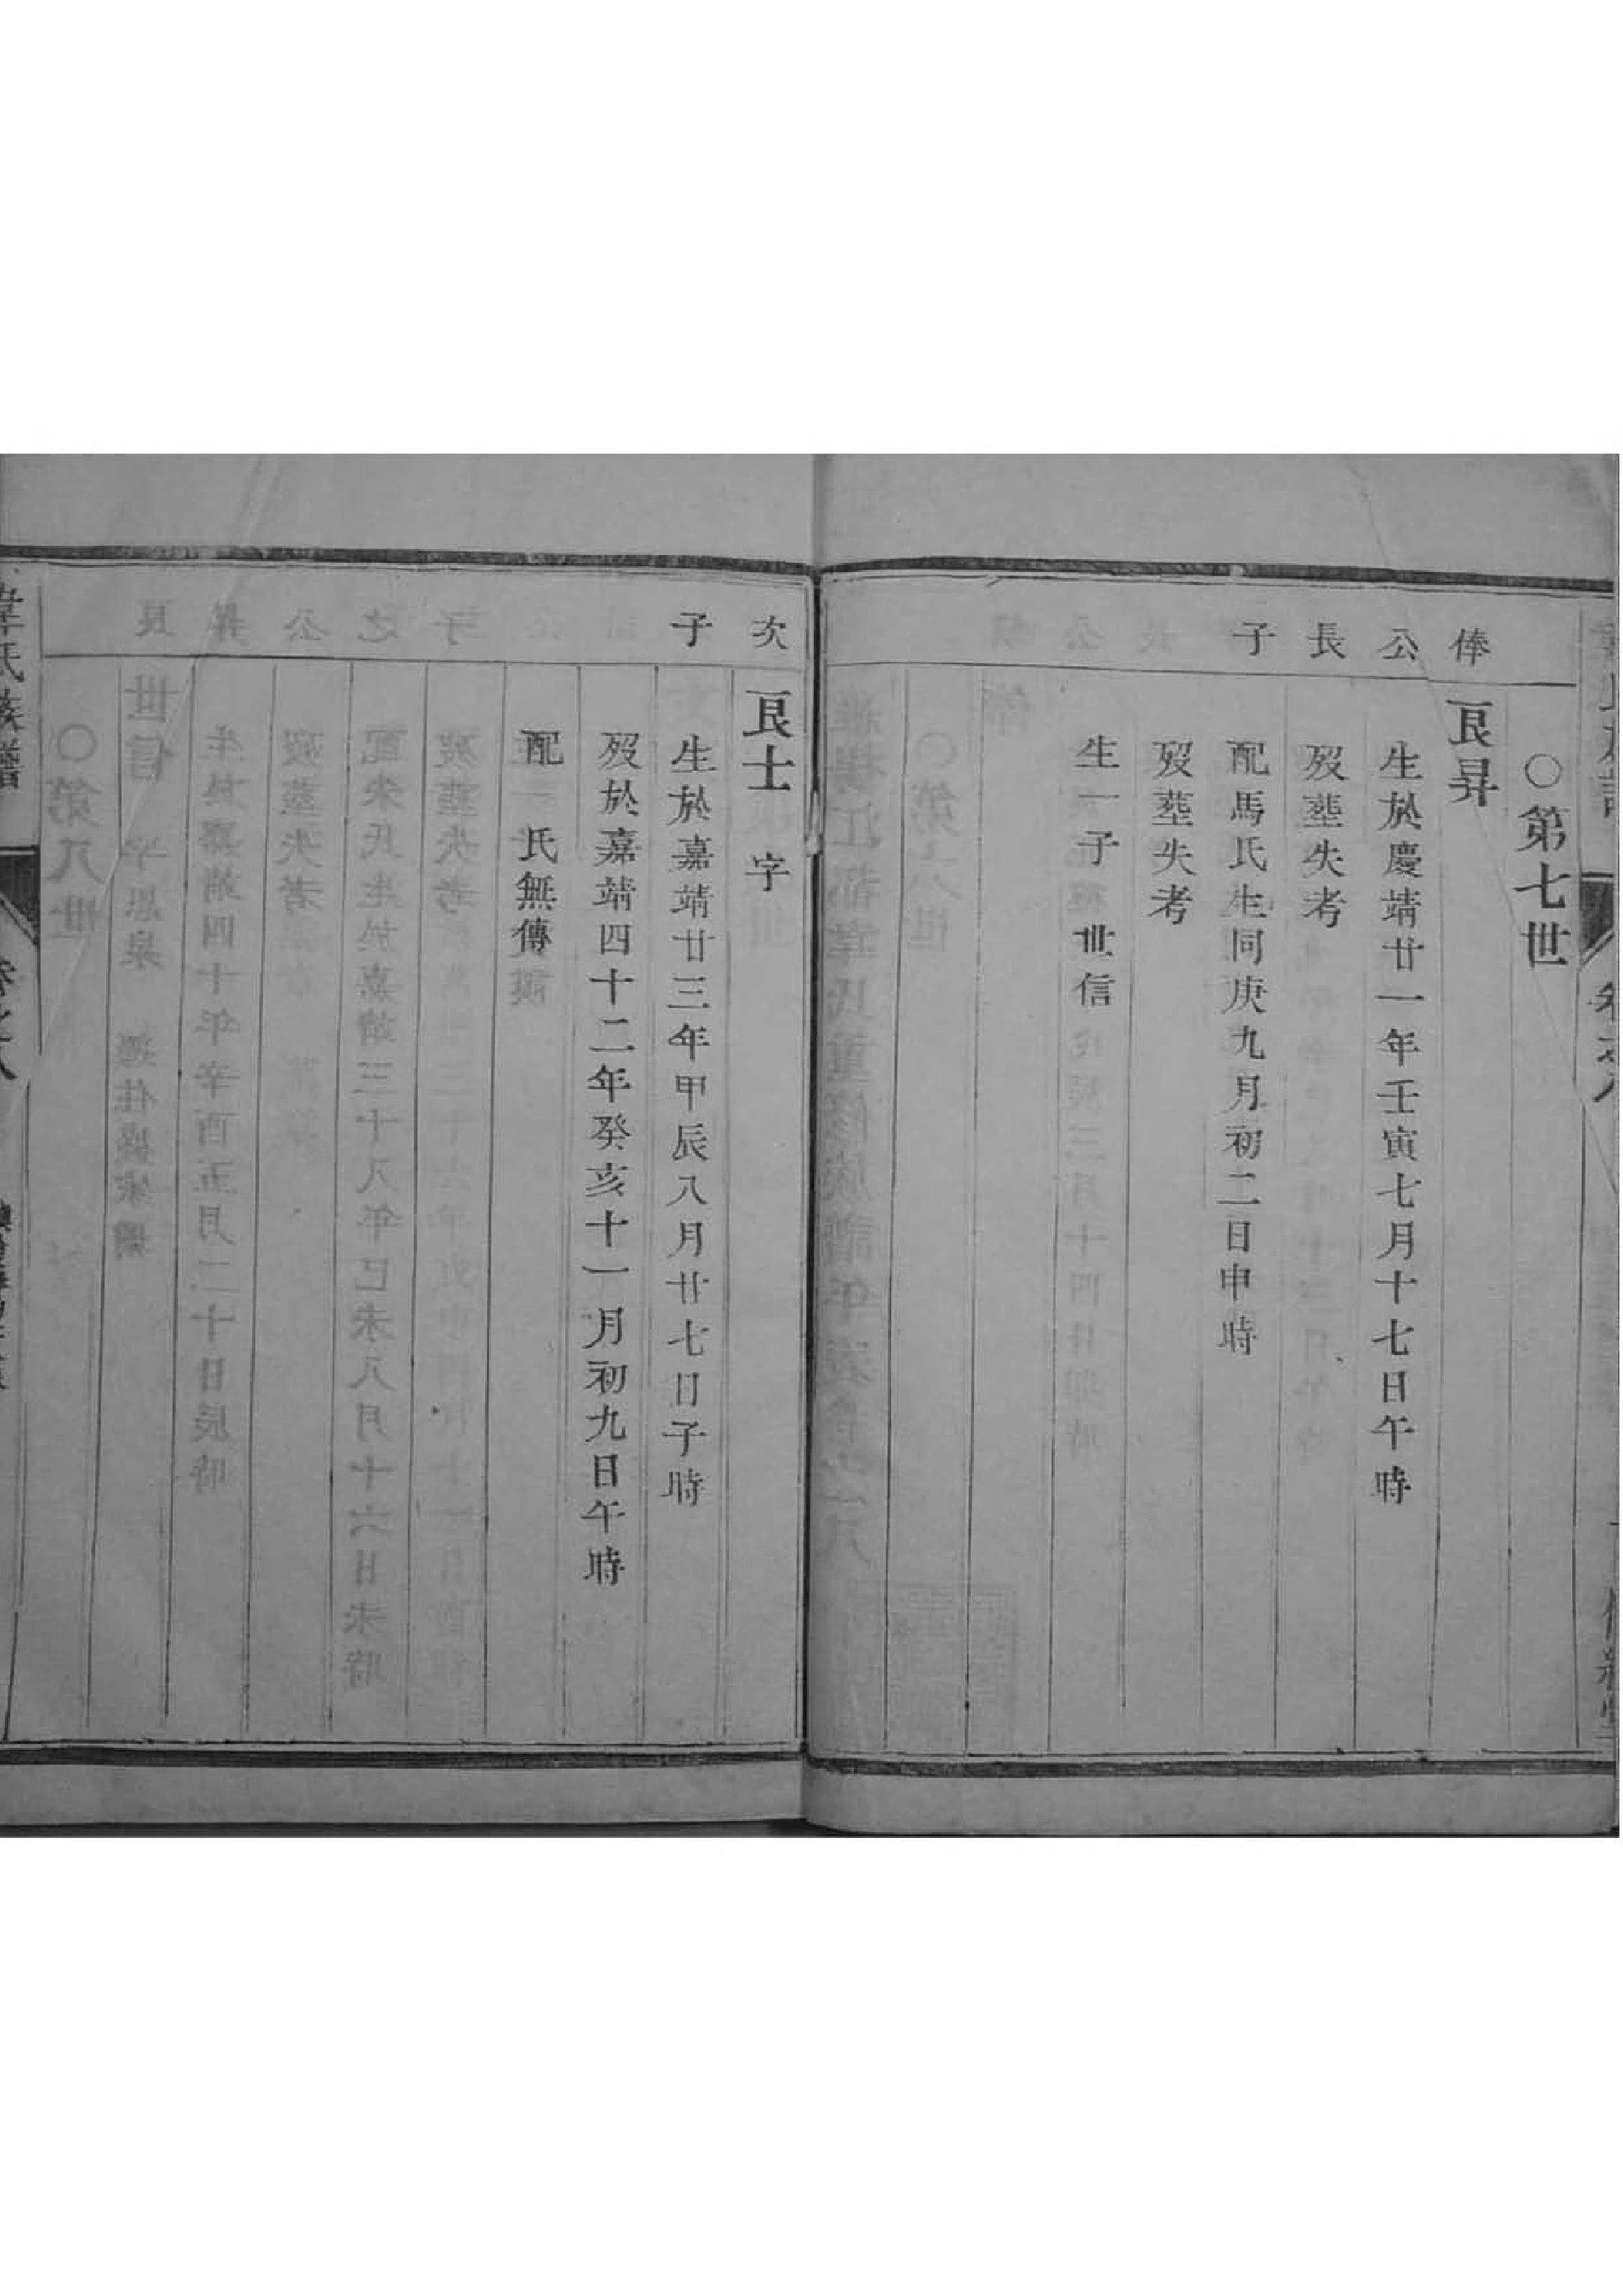 ○第七世
俸公長子
良昇
生於慶靖廿一年壬寅七月十七日午時
歿塟失考
配馬氏生同庚九月初二日申時
歿塟失考
生一子 世信
次子
良士 字
生於嘉靖廿三年甲辰八月廿七日子時
歿於嘉靖四十二年癸亥十一月初九日午時
配 氏無傳
韋氏族譜